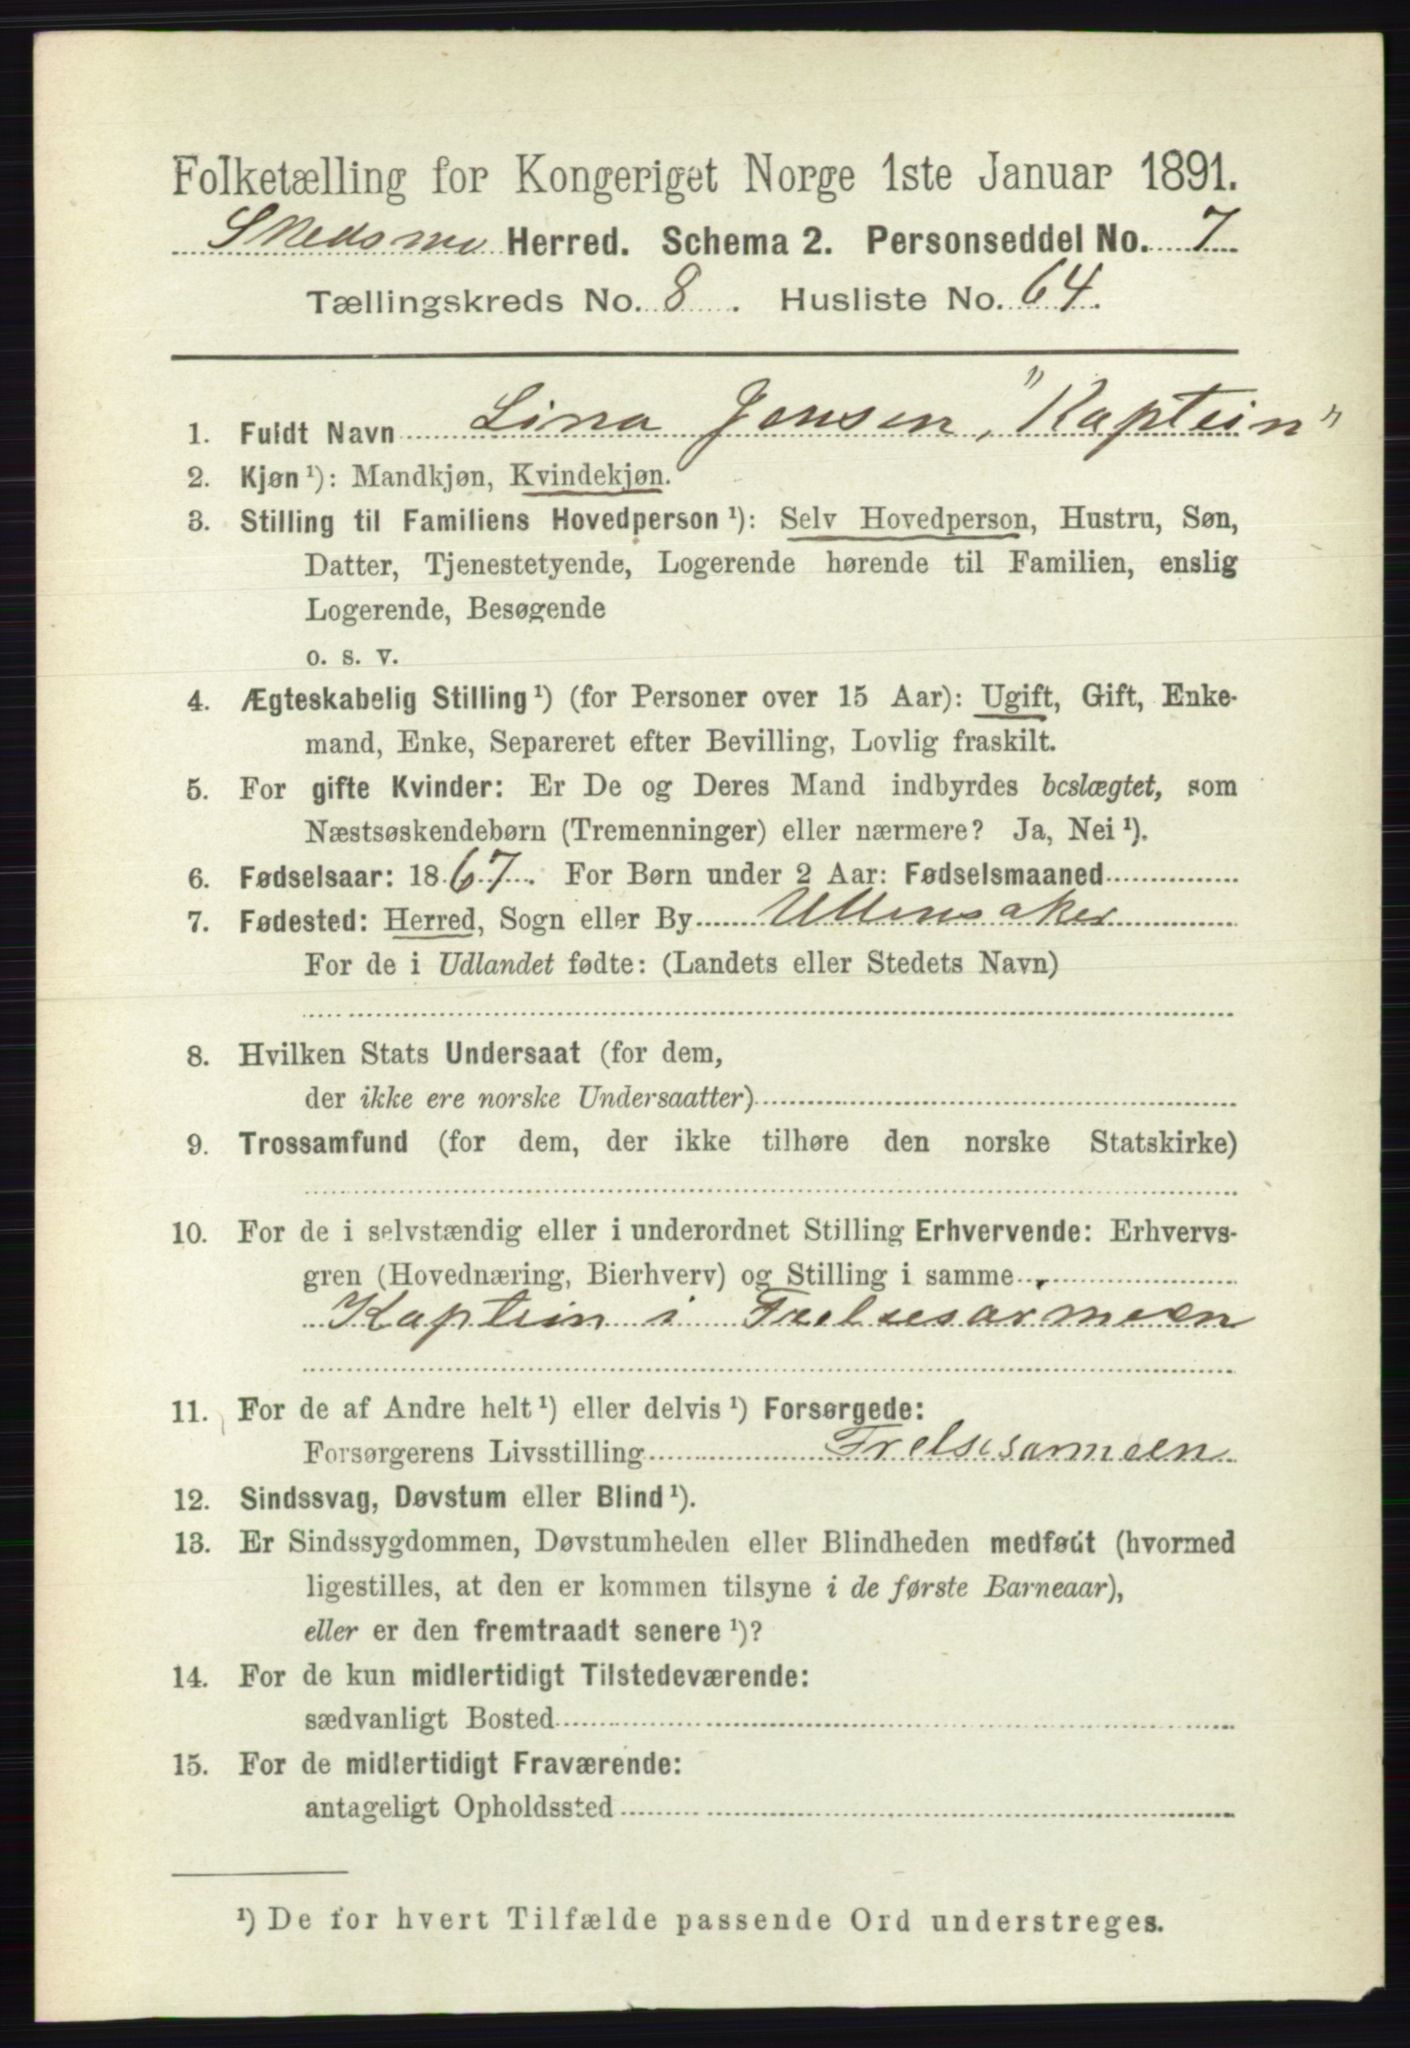 Folketælling for Kongeriget Norge 1ste Januar 1891.
Skedsmo Herred. Schema 2. Personseddel No. 7
Tællingskreds No. 8. Husliste No. 64.
1. Fuldt Navn Lina Jensen, "Kaptein"
2. Kjøn ¹): Mandkjøn, Kvindekjøn.
3. Stilling til Familiens Hovedperson ¹): Selv Hovedperson, Hustru, Søn,
Datter, Tjenestetyende, Logerende hørende til Familien, enslig
Logerende, Besøgende
o. s. v.
4. Ægteskabelig Stilling ¹) (for Personer over 15 Aar): Ugift, Gift, Enke-
mand, Enke, Separeret efter Bevilling, Lovlig fraskilt.
5. For gifte Kvinder: Er De og Deres Mand indbyrdes beslægtet, som
Næstsøskendebørn (Tremenninger) eller nærmere? Ja, Nei ¹).
6. Fødselsaar: 1867. For Børn under 2 Aar: Fødselsmaaned
7. Fødested: Herred, Sogn eller By Ullensaker
For de i Udlandet fødte: (Landets eller Stedets Navn)
8. Hvilken Stats Undersaat (for dem,
der ikke ere norske Undersaatter)
9. Trossamfund (for dem, der ikke tilhøre den norske Statskirke)
10. For de i selvstændig eller i underordnet Stilling Erhvervende: Erhvervs-
gren (Hovednæring, Bierhverv) og Stilling i samme
Kaptein i Frelsesarmeen
11. For de af Andre helt ¹) eller delvis ¹) Forsørgede:
Forsørgerens Livsstilling Frelsesarmeen
12. Sindssvag, Døvstum eller Blind ¹).
13. Er Sindssygdommen, Døvstumheden eller Blindheden medfødt (hvormed
ligestilles, at den er kommen tilsyne i de første Barneaar),
eller er den fremtraadt senere ¹)?
14. For de kun midlertidigt Tilstedeværende:
sædvanligt Bosted
15. For de midlertidigt Fraværende:
antageligt Opholdssted
¹) De for hvert Tilfælde passende Ord understreges.